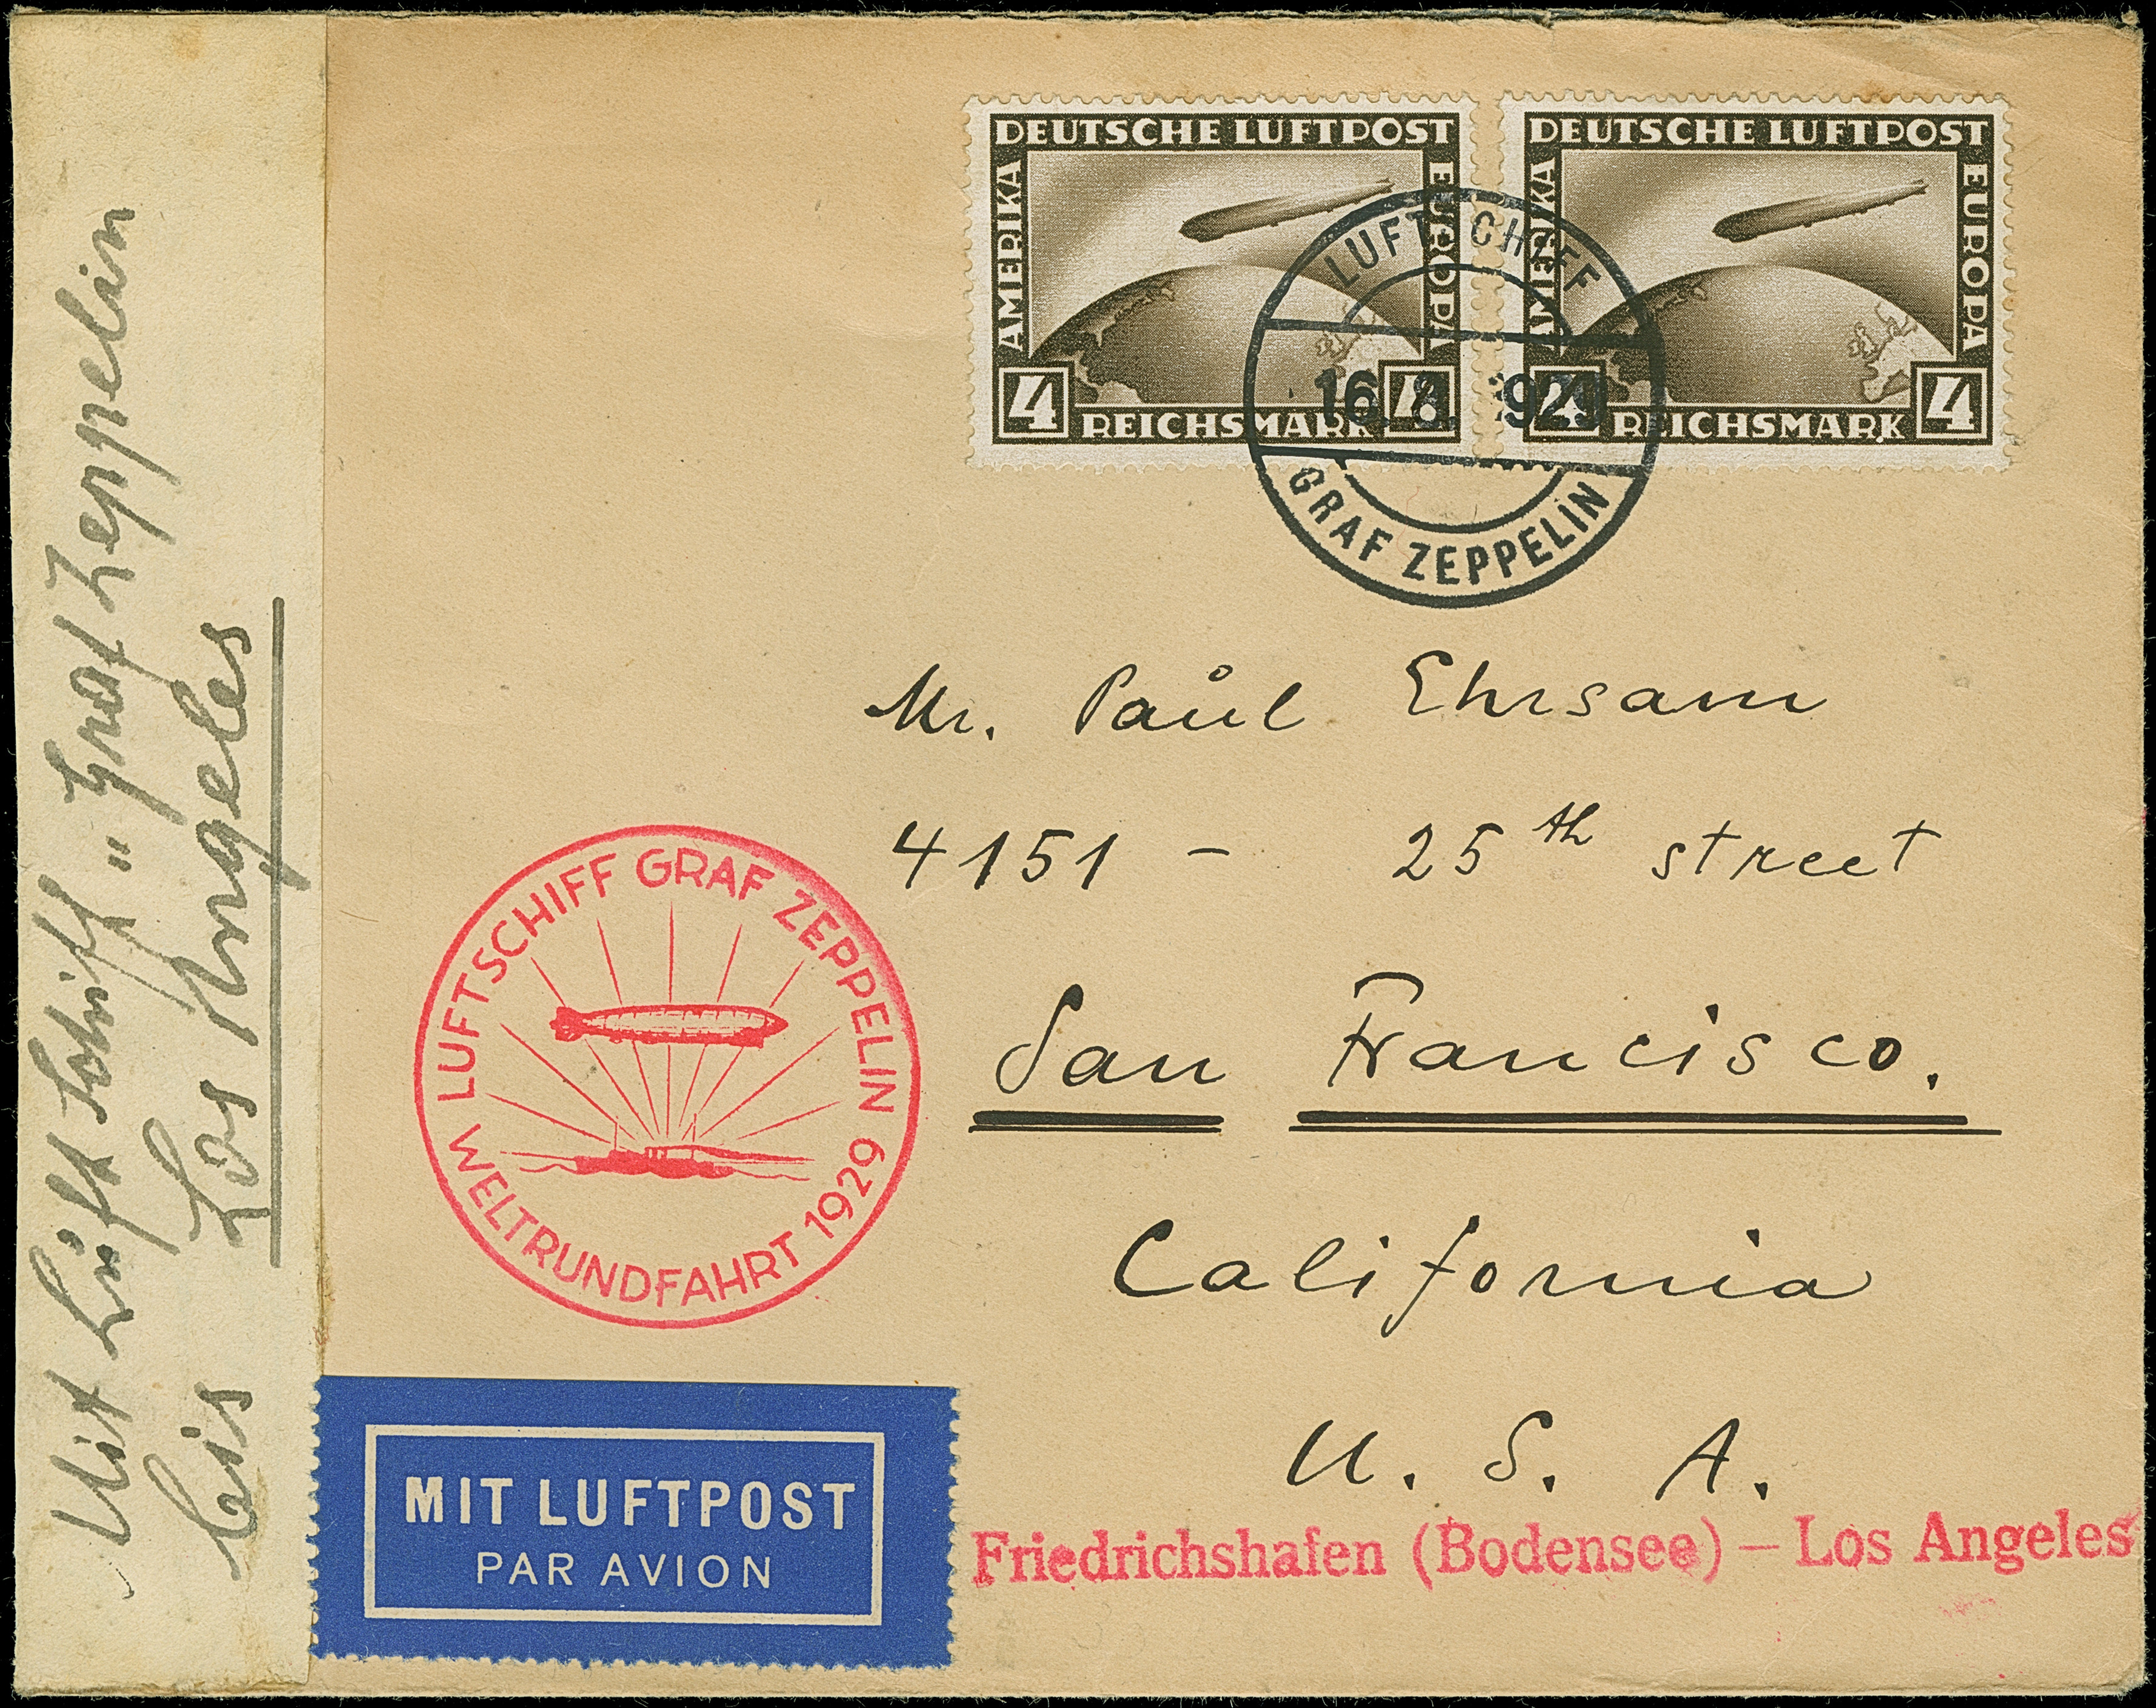 DEUTSCHE LUFTPOST
AMERIKA
EUROPA
4 REICHSMARK 4
DEUTSCHE LUFTPOST
AMERIKA
EUROPA
4 REICHSMARK 4
LUFTSCHIFF
16. 8. 1929
GRAF ZEPPELIN
Mit Luftschiff „Graf Zeppelin
bis Los Angeles
Mr. Paul Ehrsam
4151 – 25th street
San Francisco.
California
U. S. A.
LUFTSCHIFF GRAF ZEPPELIN
WELTRUNDFAHRT 1929
MIT LUFTPOST
PAR AVION
Friedrichshafen (Bodensee) – Los Angeles